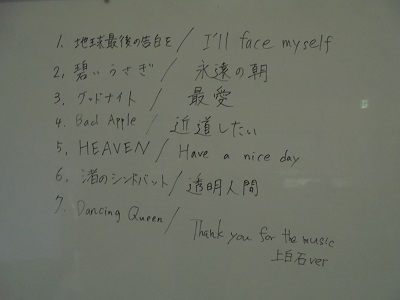 1. 地球最後の告白を / I'll face myself
2, 碧いうさぎ / 永遠の朝
3. グッドナイト / 最愛
4. Bad Apple / 近道したい
5, HEAVEN / Have a nice day
6. 渚のシンドバット / 透明人間
7. Dancing Queen / Thank you for the music
上白石ver